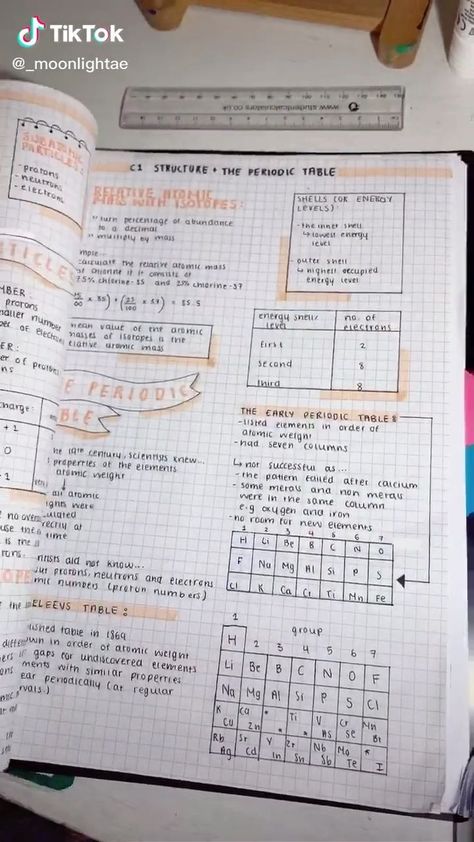 TikTok
@_moonlightae
www.studentcalculators.co.uk
SUBATOMIC
PARTICLES:
- protons
- neutrons
- electrons
C1 STRUCTURE + THE PERIODIC TABLE
RELATIVE ATOMIC
MASS WITH ISOTOPES:
turn percentage of abundance
to a decimal
multiply by mass
calculate the relative atomic mass
of chlorine if it consists of
75% chlorine-35 and 25% chlorine-37
x 35) + (25/100 x 37) = 35.5
mean value of the atomic
masses of isotopes is the
relative atomic mass
SHELLS (OR ENERGY
LEVELS):
- the inner shell
↳ lowest energy
level
- outer shell
↳ highest occupied
energy level
energy shell/ level no. of electrons
first 2
second 8
third 8
PERIODIC
THE EARLY PERIODIC TABLE:
- listed elements in order of
atomic weight
- had seven columns
↳ not successful as...
- the pattern failed after calcium
- some metals and non metals
were in the same column
e.g oxygen and iron
- no room for new elements
1 2 3 4 5 6 7
H Li Be B C N O
F Na Mg Al Si P S
Cl K Ca Cr Ti Mn Fe
charge:
+1
0
century, scientists knew...
properties of the elements
atomic weight
atomic
did not know...
protons, neutrons and electrons
numbers (proton numbers)
TABLE:
table in 1869
in order of atomic weight
gaps for undiscovered elements
with similar properties
periodically (at regular
group
1 2 3 4 5 6 7
H
Li Be B C N O F
Na Mg Al Si P S Cl
K Ca * Ti V Cr Mn
Cu Zn * * As Se Br
Rb Sr Y Zr Nb Mo *
Ag Cd In Sn Sb Te I